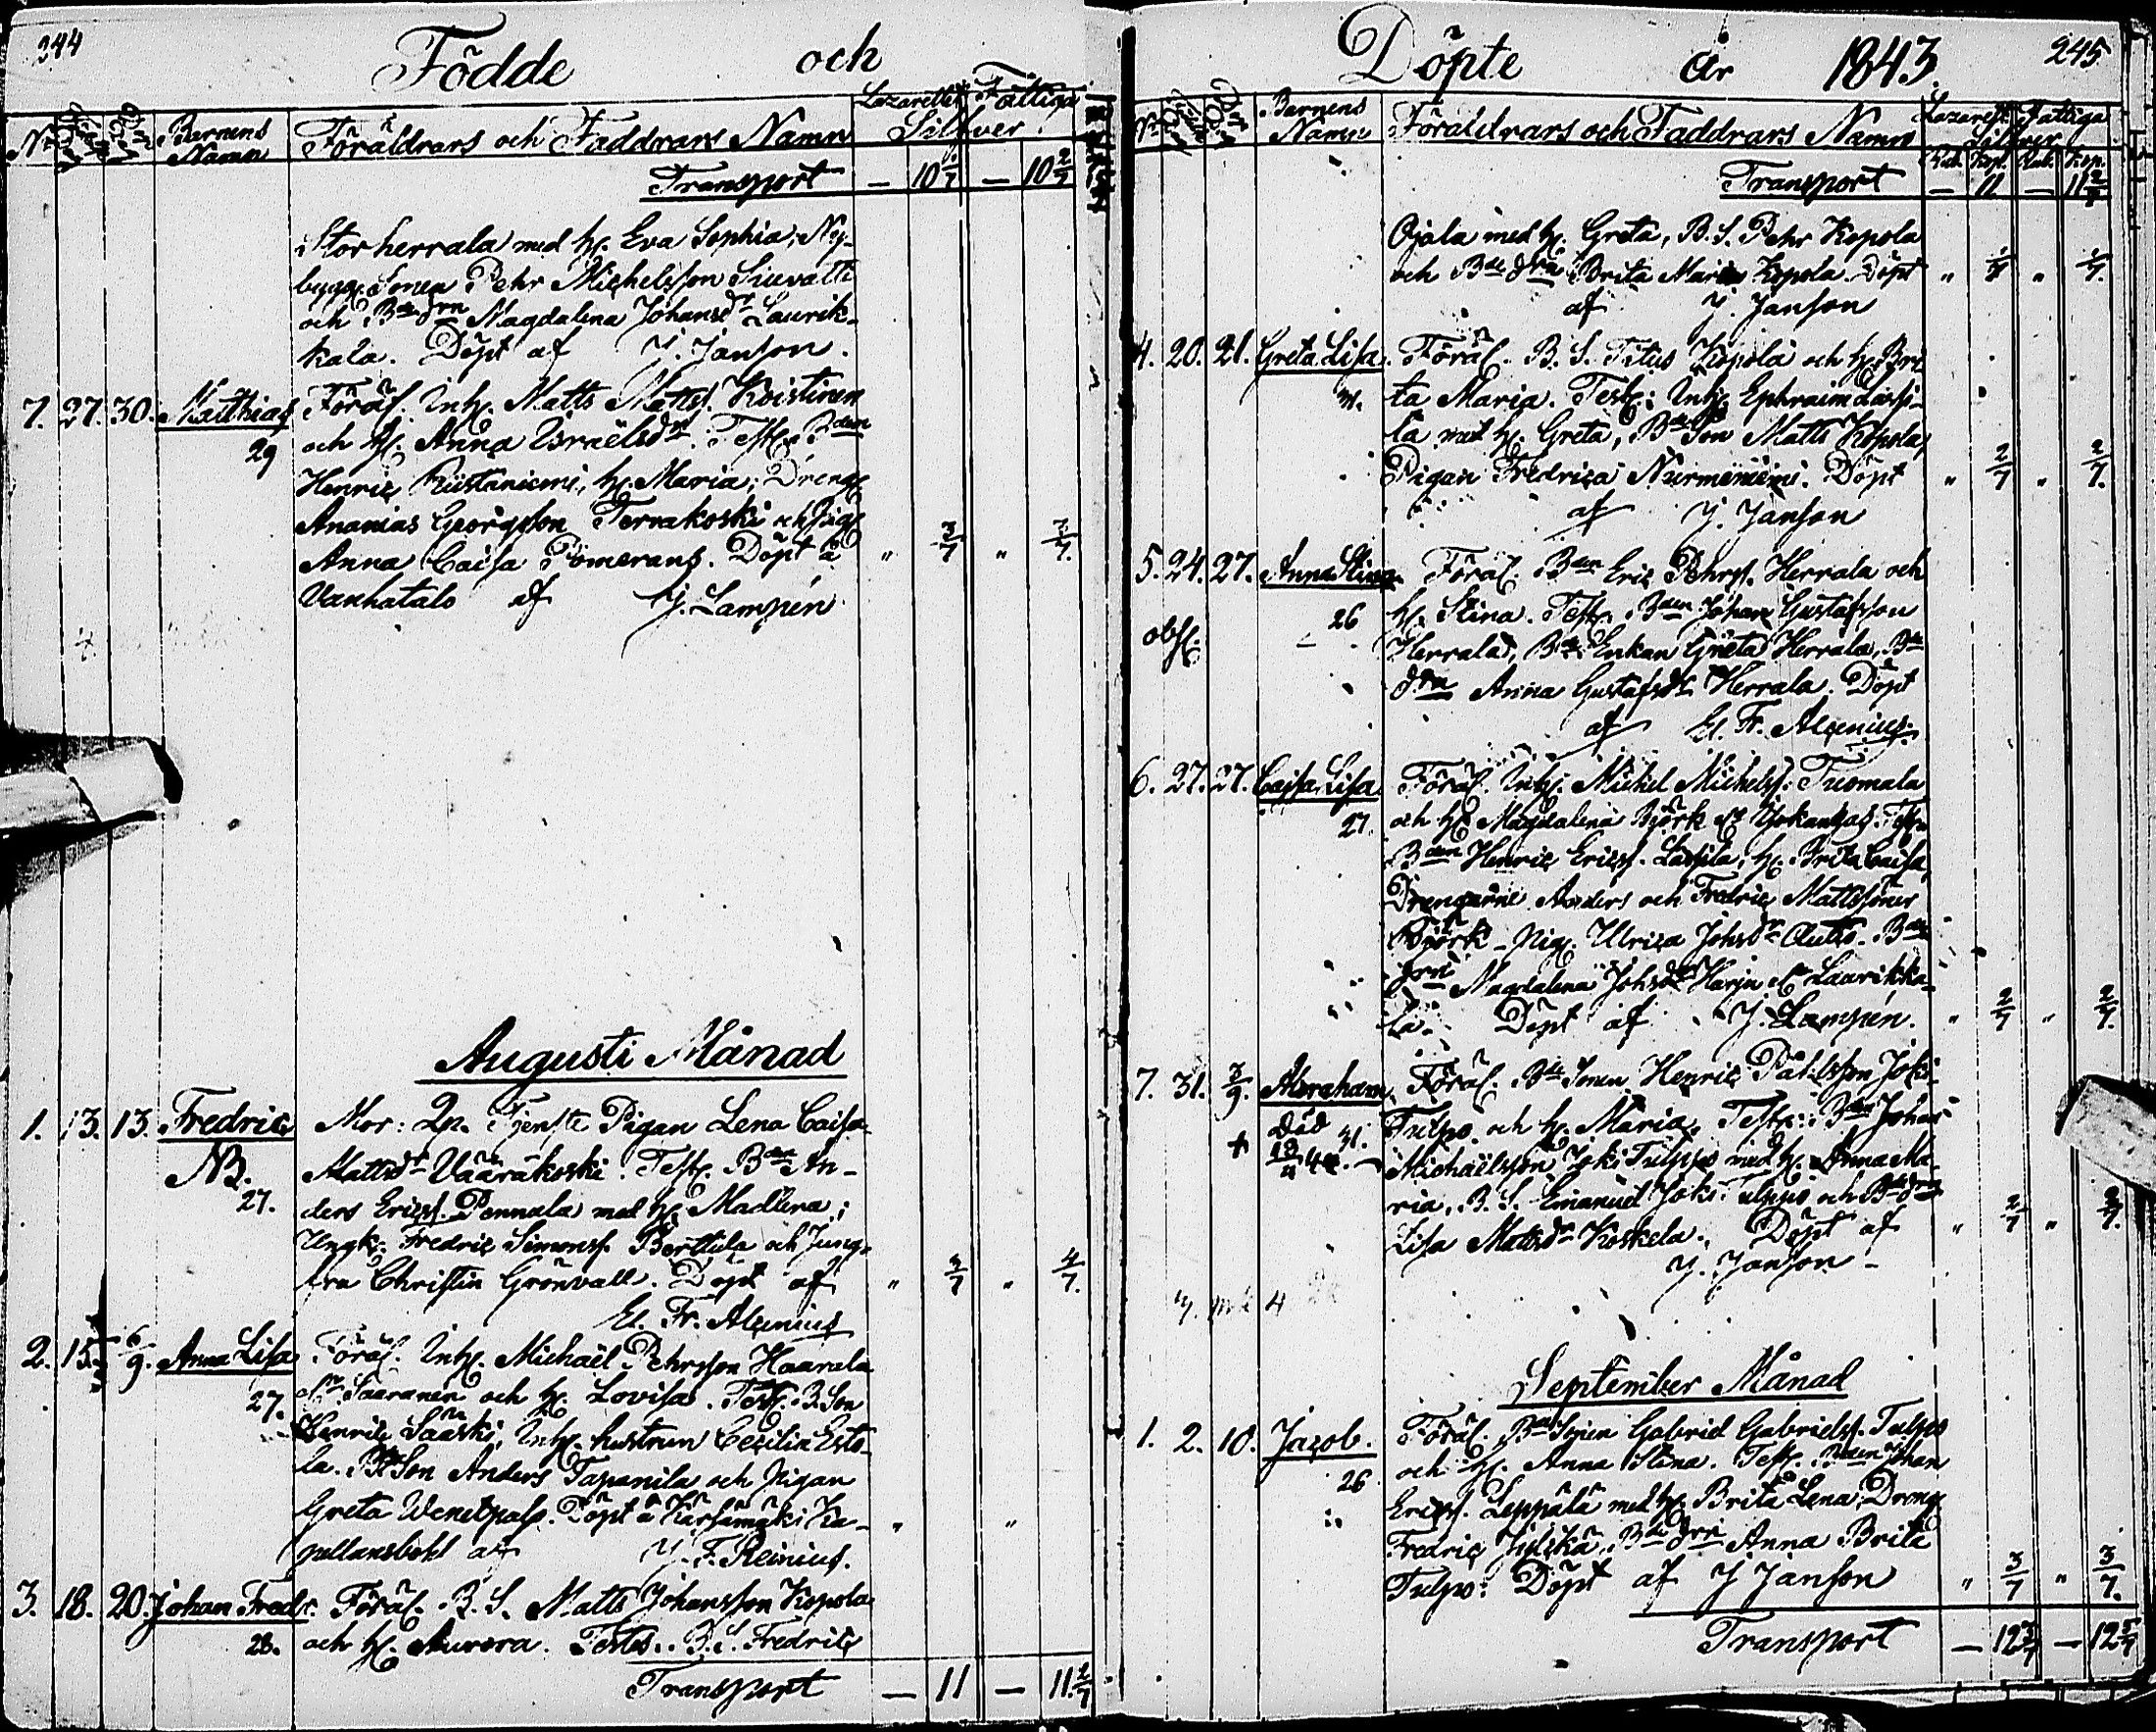 244
Födde och
No
Barnens Namn
Föräldrars och Faddrars Namn
Lazarettet Fattiga
Silfver.
Transport — 10 1/7 — 10 2/7
Storherrala med h. Eva Sophia; Ny-
bygg. Sonen Pehr Michelsson
och Bde drn Magdalena Johansdr Laurik-
kala. Döpt af J. Janson.
7. 27. 30. Matthias Föräl. Inh. Matts Mattss. Koistinen
29 och h. Anna Israëlsdr. Test. Bden
Henric Ristaniemi, h. Maria; Dreng.
Ananias Georgsson Tervakoski och Pig.
Anna Caisa Pomerans. Döpt å „ 3/7 „ 3/7.
Vanhatalo af J. Lampén
Augusti Månad
1. 13. 13. Fredric Mor: Qp. Tjenste Pigan Lena Caisa
NB. Mattsdr Vääräkoski. Test. Bden An-
27. ders Ericss. Pennala med h. Madlena;
Ungk. Fredric Simonss. Perttula och Jung-
fru Christin Grönvall. Döpt af „ 2/7 „ 4/7.
El. Fr. Alcenius
2. 15. 6/9. Anna Lisa Föräl. Inh. Michaël Pehrsson Haarala
27. Saaranen och h. Lovisa. Test. B. Son
Henric Sääski, Inh. hustrun Cecilia Esto-
la. Bde Son Anders Tapanila och Pigan
Greta Wenetpalo. Döpt å Kärsämäki Ka- „ „
pellansbohl af J. F. Reinius.
3. 18. 20. Johan Fredr. Föräl. B. S. Matts Johansson Kopola
28. och h. Aurora. Testes. B. S. Fredric
Transport — 11 — 11 2/7
Döpte år 1843. 245
No
Barnens Namn
Föräldrars och Faddrars Namn
Lazarett Fattiga
Silfver
Rub. Kop. Rub. Kop.
Transport — 11 — 11 2/7
Ojala med h. Greta, B. S. Pehr Kopola
och Bde drn Brita Maria Kopola. Döpt „ 1/7 „ 1/7.
af J. Janson
4. 20. 21. Greta Lisa. Föräl. B. S. Titus Kopola och h. Bri
31. ta Maria. Test: Inh. Ephraim Lassi-
la med h. Greta, Bde Son Matts Kopola,
Pigan Fredrica Nurmeniemi. Döpt „ 2/7 „ 2/7.
af J. Janson
5. 24. 27. Anna Stina Föräl. Bden Eric Pehrss. Herrala och
26 h. Stina. Test. Bden Johan Gustafsson
obs. Herrala, Bde Enkan Greta Herrala, Bde
drn Anna Gustafsdr Herrala. Döpt
af El. Fr. Alcenius.
6. 27. 27. Cajsa Lisa Föräl. Inh. Michel Michelss. Tuomala
27. och h. Magdalena Björk Test.
Bden Henric Ericss. Lassila, h. Brita Caisa,
Drengarne Anders och Fredric Mattssöner
Björk - Pig. Ulrica Johsdr Autio. Bde
drn Magdalena Johsdr Harju Laurikka-
la. Döpt af J. Lampén. „ 2/7 „ 2/7.
7. 31. 3/9. Abraham Föräl. Bde Sonen Henric Påhlsson Joki
Död Tulpo och h. Maria. Test: Bden Johan
31. Michaëlsson Joki Tulppo med h. Anna Ma-
ria, B. S. Emanuel Joki Tulppo och Bde drn
Lisa Mattsdr Koskela. Döpt af „ 2/7 „ 2/7.
J. Janson -
September Månad
1. 2. 10. Jacob. Föräl. Bde Sonen Gabriel Gabrielss. Tulpo
26 och h. Anna Stina. Test. Bden Johan
Ericss. Leppälä med h. Brita Lena, Dreng.
Fredric Bde drn Anna Brita
Tulpo: Döpt af J Janson „ 3/7 „ 3/7.
Transport — 12 3/7 — 12 5/7